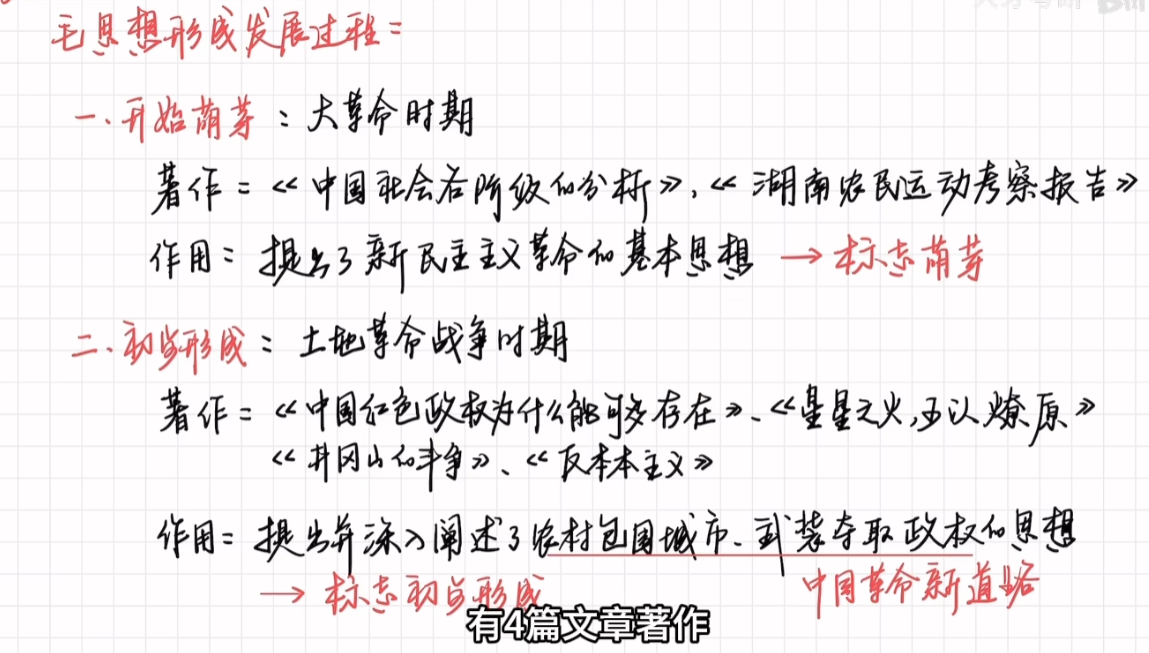 毛思想形成发展过程：
一、开始萌芽：大革命时期
著作：《中国社会各阶级的分析》，《湖南农民运动考察报告》
作用：提出了新民主主义革命的基本思想 → 标志萌芽
二、初步形成：土地革命战争时期
著作：《中国红色政权为什么能够存在》、《星星之火，可以燎原》
《井冈山的斗争》、《反本本主义》
作用：提出并深入阐述了农村包围城市、武装夺取政权的思想
→ 标志初步形成 中国革命新道路
有4篇文章著作